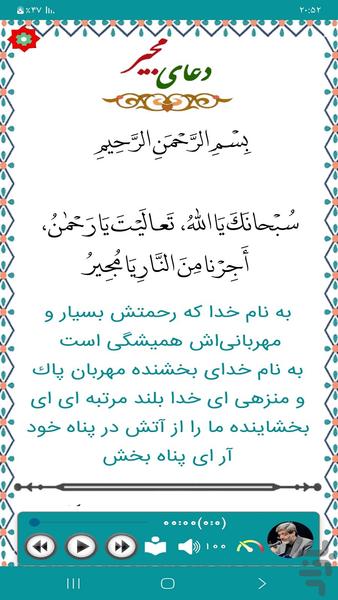 ٪۴۷
۲۰:۵۲
دعای مجیر
بِسْمِ الرَّحْمَنِ الرَّحِيمِ
سُبْحانَكَ يَا اللهُ، تَعالَيْتَ يَا رَحْمٰنُ،
أَجِرْنا مِنَ النَّارِ يَا مُجِيرُ
به نام خدا که رحمتش بسیار و
مهربانی‌اش همیشگی است
به نام خدای بخشنده مهربان پاك
و منزهی ای خدا بلند مرتبه ای ای
بخشاینده ما را از آتش در پناه خود
آر ای پناه بخش
۰۰:۰۰(۰:۰)
۱۰۰